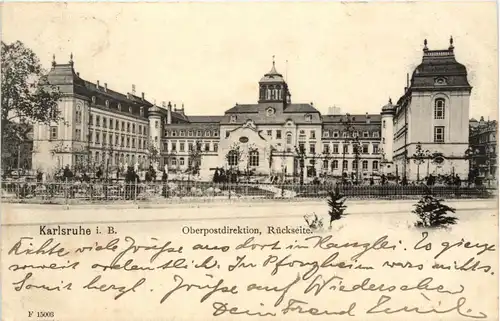 Karlsruhe i. B.
Oberpostdirektion, Rückseite.
viele Grüße aus dort in Es ging
soweit ordentlich. In Pforzheim war's nichts.
Sonst herzl. Grüße auf Wiedersehen
Dein Freund Emil.
F 15003